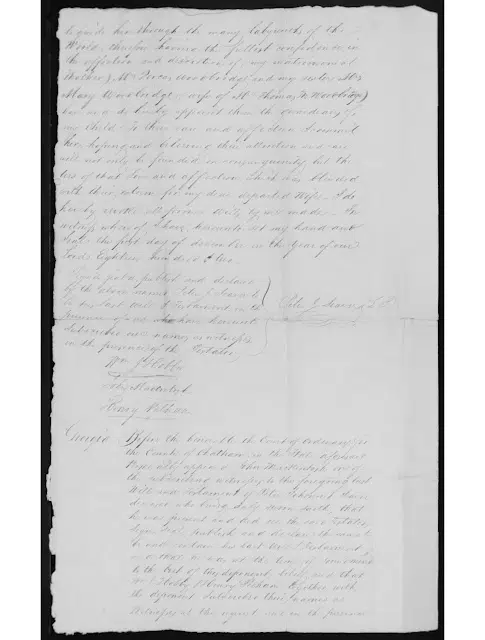 to guide her through the many labyrinths of the
World, therefore having the fullest confidence in
the affection and discretion of my matrimonial
Brother, Mr. Woodbridge and my sister Mrs
Mary Woodbridge wife of Mr Thomas Woodbridge
do hereby appoint them the guardians of
my Child. To their care and affection I commit
her, hoping and their attention and care
will not only be founded in consanguinity, but the
ties of that love and affection which has blended
with their esteem for my dear departed Wife. I do
hereby revoke all former Wills by me made. In
witness whereof, I have hereunto set my hand and
Seal the first day of December in the Year of our
Lord Eighteen hundred & two.
Signed, sealed, published and declared
by the above named Peter J.
as his last Will & Testament in the
presence of us who have hereunto
subscribed our names as witnesses
in the presence of the Testator
Peter J. L.S.
Wm J Hobby
Georgia
Before the honorable the Court of Ordinary in
the County of Chatham in the State aforesaid
Personally appeared John one of
the subscribing witnesses to the foregoing last
Will and Testament of Peter
deceased who being duly sworn saith, that
he was present and did see the said Testator
sign, seal, publish and declare the same to
be and contain his last Will & Testament
and that he was at the time of
to the best of this deponents belief and that
Wm J Hobby & Henry together with
the deponent, subscribed their names as
Witnesses at the request and in the presence